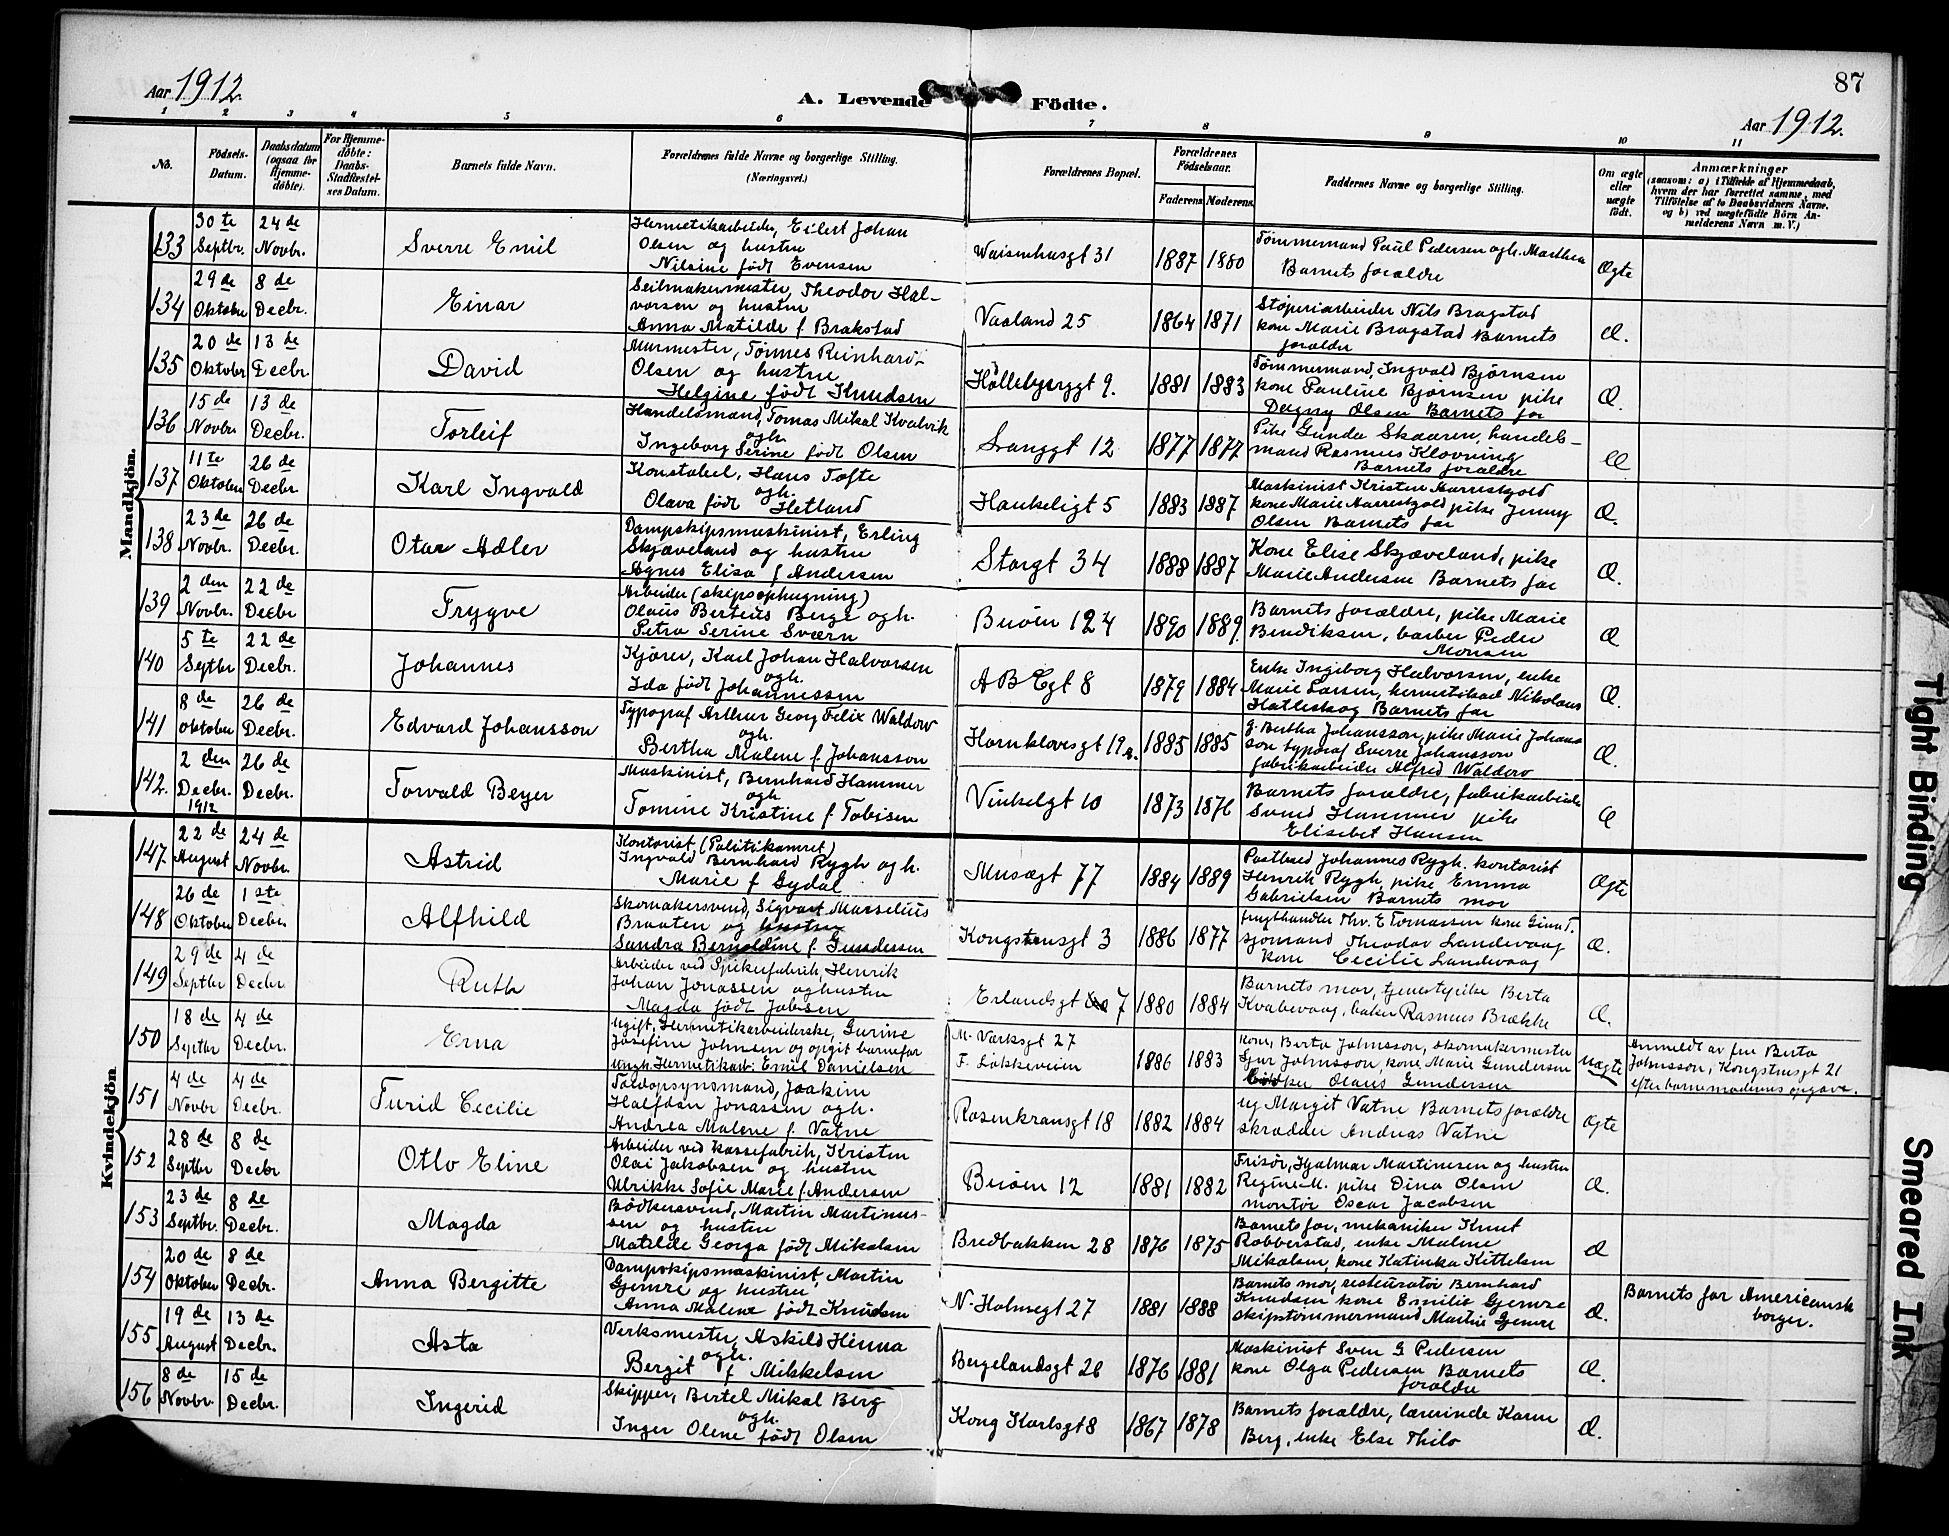 87
Aar 1912.
A. Levende Födte.
Aar 1912.
1 2 3 4 5 6 7 8 9 10 11
No.
Födsels-Datum.
Daabsdatum (ogsaa for Hjemme-döbte).
For Hjemme-döbte: Daabs-Stadfæstel-ses Datum.
Barnets fulde Navn.
Forældrenes fulde Navne og borgerlige Stilling.
(Næringsvei.)
Forældrenes Bopæl.
Forældrenes Födselsaar.
Faderens Moderens.
Faddernes Navne og borgerlige Stilling.
Om ægte eller uægte födt.
Anmærkninger
(saasom: a) i Tilfælde af Hjemmedaab,
hvem der har forrettet samme, med
Tilföielse af to Daabsvidners Navne.
og b) ved uægtefödte Börn An-
melderens Navn m. V.)
Mandkjön.
133 30te Septbr. 24de Novbr. Sverre Emil
Hermetikarbeider, Eilert Johan
Olsen og hustru
Nilsine født Evensen
Waisenhusgt 31 1887 1880
Tømmermand Paul Pedersen ogh. Marthea
Barnets forældre
Ægte
134 29de Oktober 8de Decbr. Einar
Seilmakermester, Theodor Hal-
vorsen og hustru
Anna Matilde f Brakstad
Vaaland 25 1864 1871
Støperiarbeider Nils Bragstad
kone Marie Bragstad Barnets
forældre
Æ.
135 20de Oktobr 13de Decbr. David
Murmester, Tønnes Reinhard
Olsen og hustru
Helgine født Knudsen
9. 1881 1883
Tømmermand, Ingvald Bjørnsen
kone Pauline Bjørnsen pike
Dagny Olsen Barnets far
Æ.
136 15de Novbr 13de Decbr. Torleif
Handelsmand, Tomas Mikal Kvalvik
ogh.
Ingeborg Serine født Olsen
Langgt 12 1877 1877
Pike Gunda Skaaren, handels-
mand Rasmus Klovning
Barnets forældre
Æ
137 11te Oktober 26de Decbr. Karl Ingvald
Konstabel, Hans Tofte
ogh.
Olava født Hetland
Haukeligt 5 1883 1887
Maskinist Kristen
kone Marie pike Jenny
Olsen Barnets far
Æ.
138 23de Novbr. 26de Decbr. Otar Adler
Dampskipsmaskinist, Erling
Skjæveland og hustru
Agnes Elisa f Andersen
Storgt 34 1888 1887
Kone Elise Skjæveland, pike
Marie Andersen Barnets far
Æ.
139 2den Novbr. 22de Decbr Trygve
Arbeider (skipsophugning)
Olaus Berteus Berge ogh.
Petra Serine Sværn
Buøen 124 1890 1889
Barnets forældre, pike Marie
Bendiksen, barber Peder
Monsen
Æ
140 5te Septbr 22de Decbr. Johannes
Kjører, Karl Johan Halvorsen
ogh.
Ida født Johannessen
A B Cgt 8 1879 1884
Enke Ingeborg Halvorsen, enke
Marie Larsen, Nikolaus
Hatleskog Barnets far
Æ.
141 8de Oktober 26de Decbr. Edvard Johansson
Typograf Arthur Georg Felix Waldow
ogh.
Bertha Malene f Johansson
Hornklovesgt 19 1885 1885
Bertha Johansson, pike Marie Johans
son typograf Sverre Johansson
fabrikarbeider Alfred Waldow
Æ.
142. 2den Decbr. 1912 26de Decbr. Torvald Beyer
Maskinist, Bernhard Hammer
ogh
Tomine Kristine f Tobisen
Vinkelgt 10 1873 1876
Barnets forældre, fabrikarbeider
Svend Hammer pike
Elisebet Hansen
Æ
Kvindekjön
147 22de August 24de Novbr. Astrid
Kontorist (Politikamret)
Ingvald Bernhard Rygh og h.
Marie f Gydal
Musægt 77 1884 1889
Postbud Johannes Rygh. kontorist
Henrik Rygh, pike Emma
Gabrielsen Barnets mor
Ægte
148 26de Oktober 1ste Decbr. Alfhild
Skomakersvend, Sigvart Marselius
Braaten og hustru
Sandra Bernoldine f Gundersen
Kongstensgt 3 1886 1877
frugthandler Thv. E Tomassen kone Gina T.
sjømand Theodor Landevaag
kone Cecilie Landevaag
Æ.
149 29de Septbr 4de Decbr Ruth
Arbeider ved Spikerfabrik, Henrik
Johan Jonassen og hustru
Magda født Jobsen
Erlandsgt 7 1880 1884
Barnets mor, tjenestepike Berta
Kvalevaag, baker Rasmus Brække
Æ.
150 18de Septbr 4de Decbr. Erna
Ugift, Hermetikarbeiderske, Gurine
Josefine Johnsen og opgit barnefar
ungk. Hermetikarb. Emil Danielsen
M. Værksgt 27
F. Løkkeveien 1886 1883
kone, Berta Johnsson, skomakermester
Johnsson, kone Marie Gundersen
Olaus Gundersen
Uægte
Anmeldt av fru Berta
Johnsson, Kongstensgt 21
efter barnemoderens opgave.
151 4de Novbr 4de Decbr. Turid Cecilie
Toldopsynsmand, Joakim
Halfdan Jonassen ogh.
Andrea Malene f. Vatne
Rosenkransgt 18 1882 1884
Margit Vatne Barnets forældre
skrædder Andreas Vatne
Ægte
152 28de Septbr 8de Decbr Otlo Eline
Arbeider ved kassefabrik, Kristen
Olai Jakobsen og hustru
Ulrikke Sofie Marie f Andersen
Buøen 12 1881 1882
Frisør, Hjalmar Martinesen og hustru
Regine M. pike Dina Olsen
montør Oscar Jacobsen
Æ.
153 23de Septbr. 8de Decbr. Magda
Bødkersvend, Martin Martinus-
sen og hustru
Matilde Georga født Mikalsen
Bredbakken 28 1876 1875
Barnets far, mekaniker Knut
Robberstad, enke Malene
Mikalsen, kone Katinka Kittelsen
Æ
154 20de Oktober 8de Decbr. Anna Bergitte
Dampskipsmaskinist, Martin
Gjemre og hustru
Anna Malene født Knudsen
N. Holmegt 27 1881 1888
Barnets mor, restauratør Bernhard
Knudsen kone Emilie Gjemre
skipstømmermand Martin Gjemre
Æ.
Barnets far Americansk
borger.
155 19de August 13de Decbr. Asta
Verksmester, Askild Henna
ogh.
Bergit f Mikkelsen
Bergelandsgt 26 1876 1881
Maskinist Sven G Pedersen
kone Olga Pedersen Barnets
forældre
Æ.
156 8de Novbr. 15de Decbr. Ingerid
Skipper, Bertel Mikal Berg
ogh.
Inger Olene født Olsen
Kong Karlsgt 8 1867 1878
Barnets forældre, lærerinde Karen
Berg, enke Else Thilo
Æ.
Tight Binding
Smeared Ink